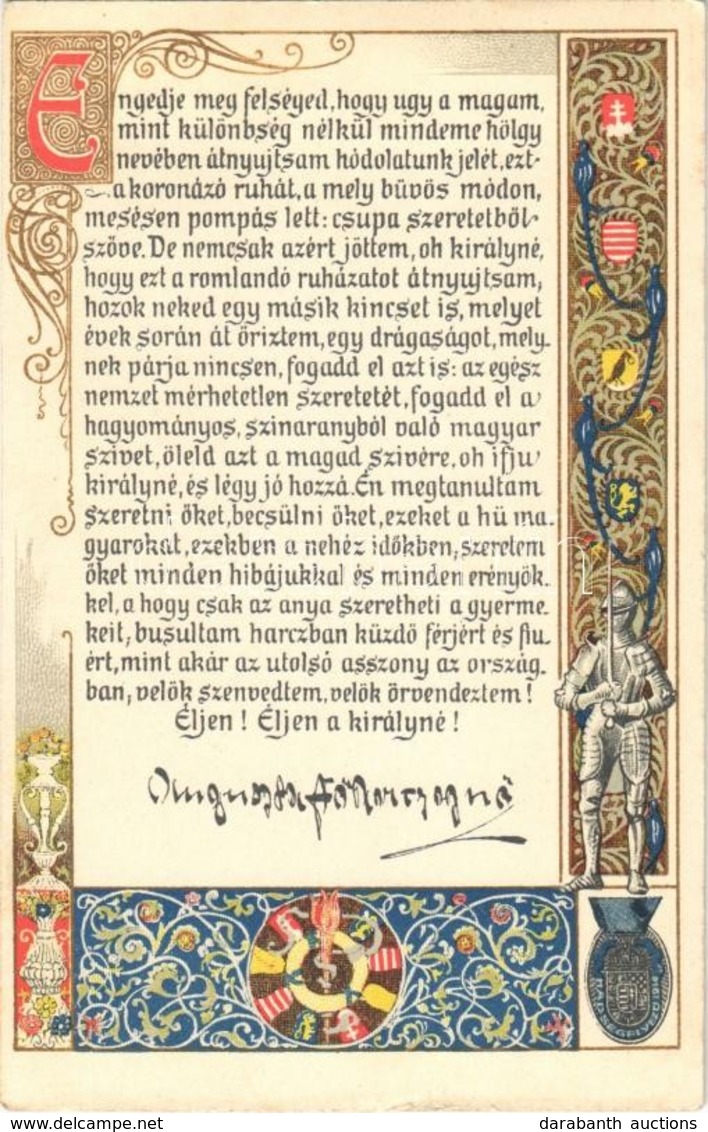 Engedje meg felséged, hogy ugy a magam,
mint különbség nélkül mindeme hölgy
nevében átnyujtsam hódolatunk jelét, ezt
a koronázó ruhát, a mely bűvös módon,
mesésen pompás lett: csupa szeretetből
szőve. De nemcsak azért jöttem, oh királyné,
hogy ezt a romlandó ruházatot átnyujtsam,
hozok neked egy másik kincset is, melyet
évek során át őriztem, egy drágaságot, mely-
nek párja nincsen, fogadd el azt is: az egész
nemzet mérhetetlen szeretetét, fogadd el a
hagyományos, szinaranyból való magyar
szivet, öleld azt a magad szivére, oh ifju
királyné, és légy jó hozzá. Én megtanultam
szeretni őket, becsülni őket, ezeket a hű ma-
gyarokat, ezekben a nehéz időkben, szeretem
őket minden hibájukkal és minden erényök-
kel, a hogy csak az anya szeretheti a gyerme-
keit, busultam harczban küzdő férjért és fiu-
ért, mint akár az utolsó asszony az ország-
ban, velök szenvedtem, velök örvendeztem!
Éljen! Éljen a királyné!
Auguszta főherczegnő
delcampe.net
darabanth_auctions